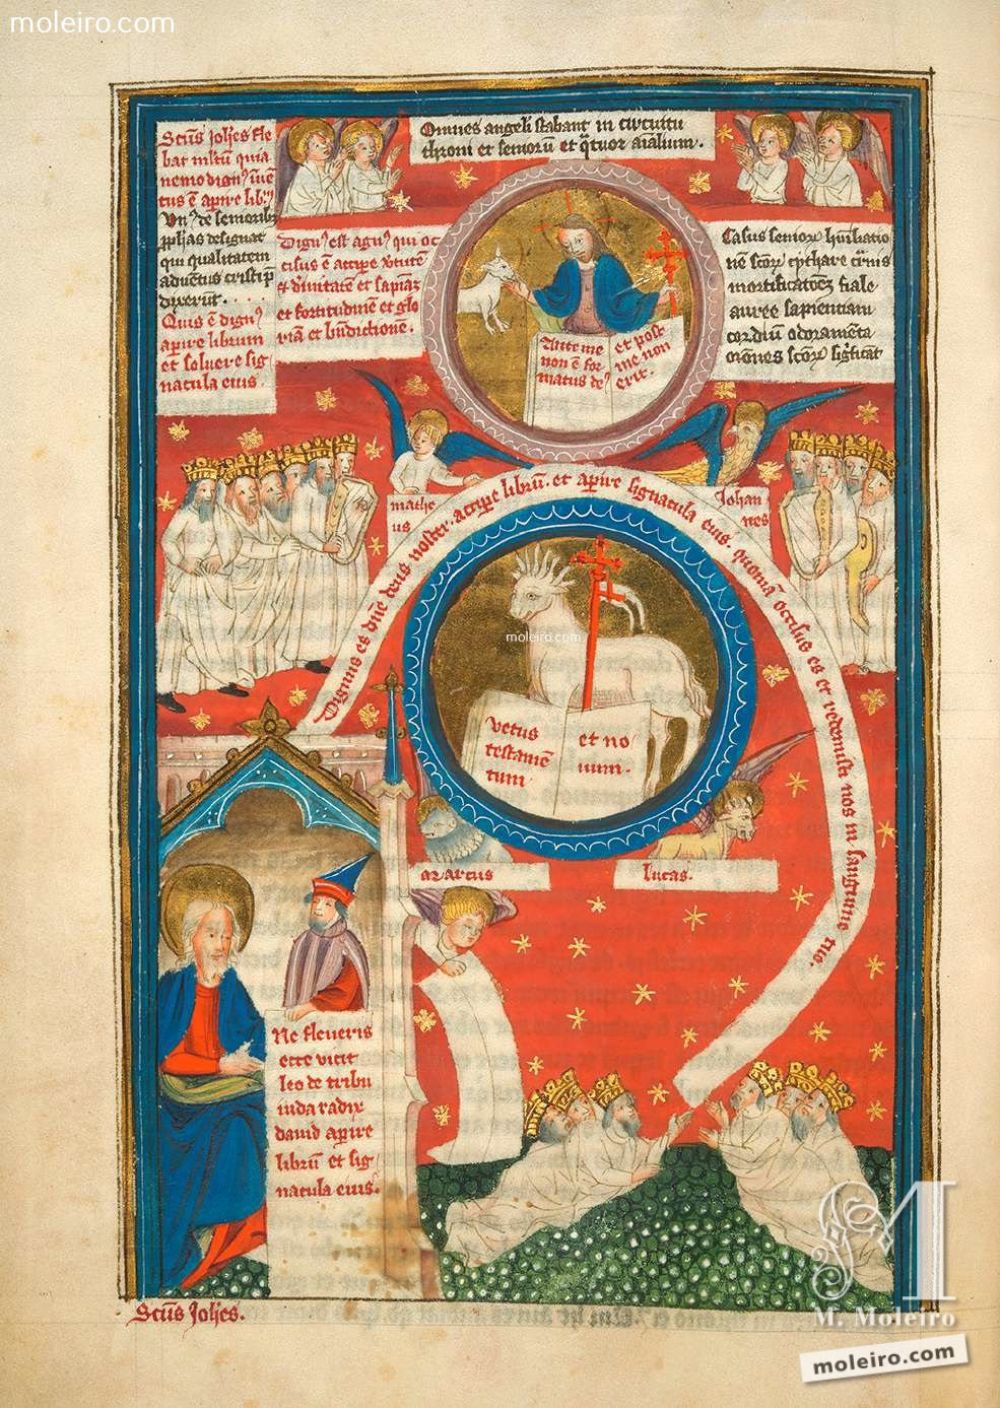 moleiro.com
Scūs Joħes fle
bat mltū quia
nemo dignꝰ īuē
tus ē apire lib
Vnꝰ de semoribꝫ
pphās designat
qui qualitatem
aduentus cristi p
dixerūt
Quis ē dignꝰ
apire librum
et soluere sig
nacula eius.
Omnes angeli stabant in circuitu
throni et semorū et qtuor aīalium.
Dignꝰ est agnꝰ qui oc
cisus ē accipe vtutē
et diuinitatē et sapiam
et fortitudinem et glo
riā et bndictionē.
Casus seniorꝝ humliatio
nē scorꝝ cythare carnis
mortificatoēꝫ fiale
auree sapientiam
cordium odoramēta
orōnes scorꝝ significat
Ante me
non ē for
matus deꝰ
et post
me non
erit.
mathe
us
Johan
nes
Dignus es dn̄e deus noster. accipe librū. et apire signacula eius. quoniā occisus es et redemisti nos in sanguine tuo.
moleiro.com
vetus
testamē
tum
et no
uum.
marcus
lucas.
Ne fleueris
ecce vicit
leo de tribu
iuda radix
dauid apire
librū et sig
nacula eius.
Scūs Joħes.
M
M. Moleiro
moleiro.com